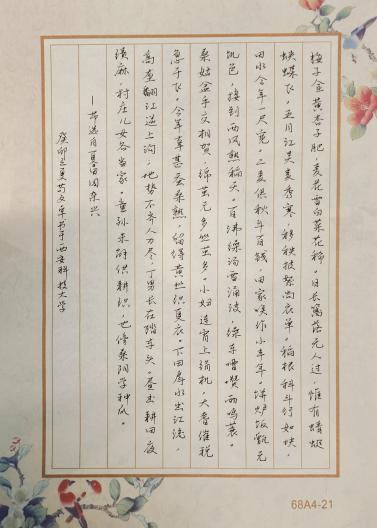 梅子金黄杏子肥，麦花雪白菜花稀。日长篱落无人过，惟有蜻蜓
蛱蝶飞。五月江吴麦秀寒，移秧披絮尚衣单。稻根科斗行如块，
田水今年一尺宽。二麦俱秋斗百钱，田家唤作小丰年。饼炉饭甑无
饥色，接到西风熟稻天。百沸缫汤雪涌波，缫车嘈囋雨鸣蓑。
桑姑盆手交相贺，绵茧无多丝茧多。小妇连宵上绢机，大耆催税
急于飞。今年幸甚蚕桑熟，留得黄丝织夏衣。下田戽水出江流，
高垄翻江逆上沟，地势不齐人力尽，丁男长在踏车头。昼出耕田夜
绩麻，村庄儿女各当家。童孙未解供耕织，也傍桑阴学种瓜。
—节选自夏日田园杂兴
癸卯孟夏 书于西安科技大学
68A4-21